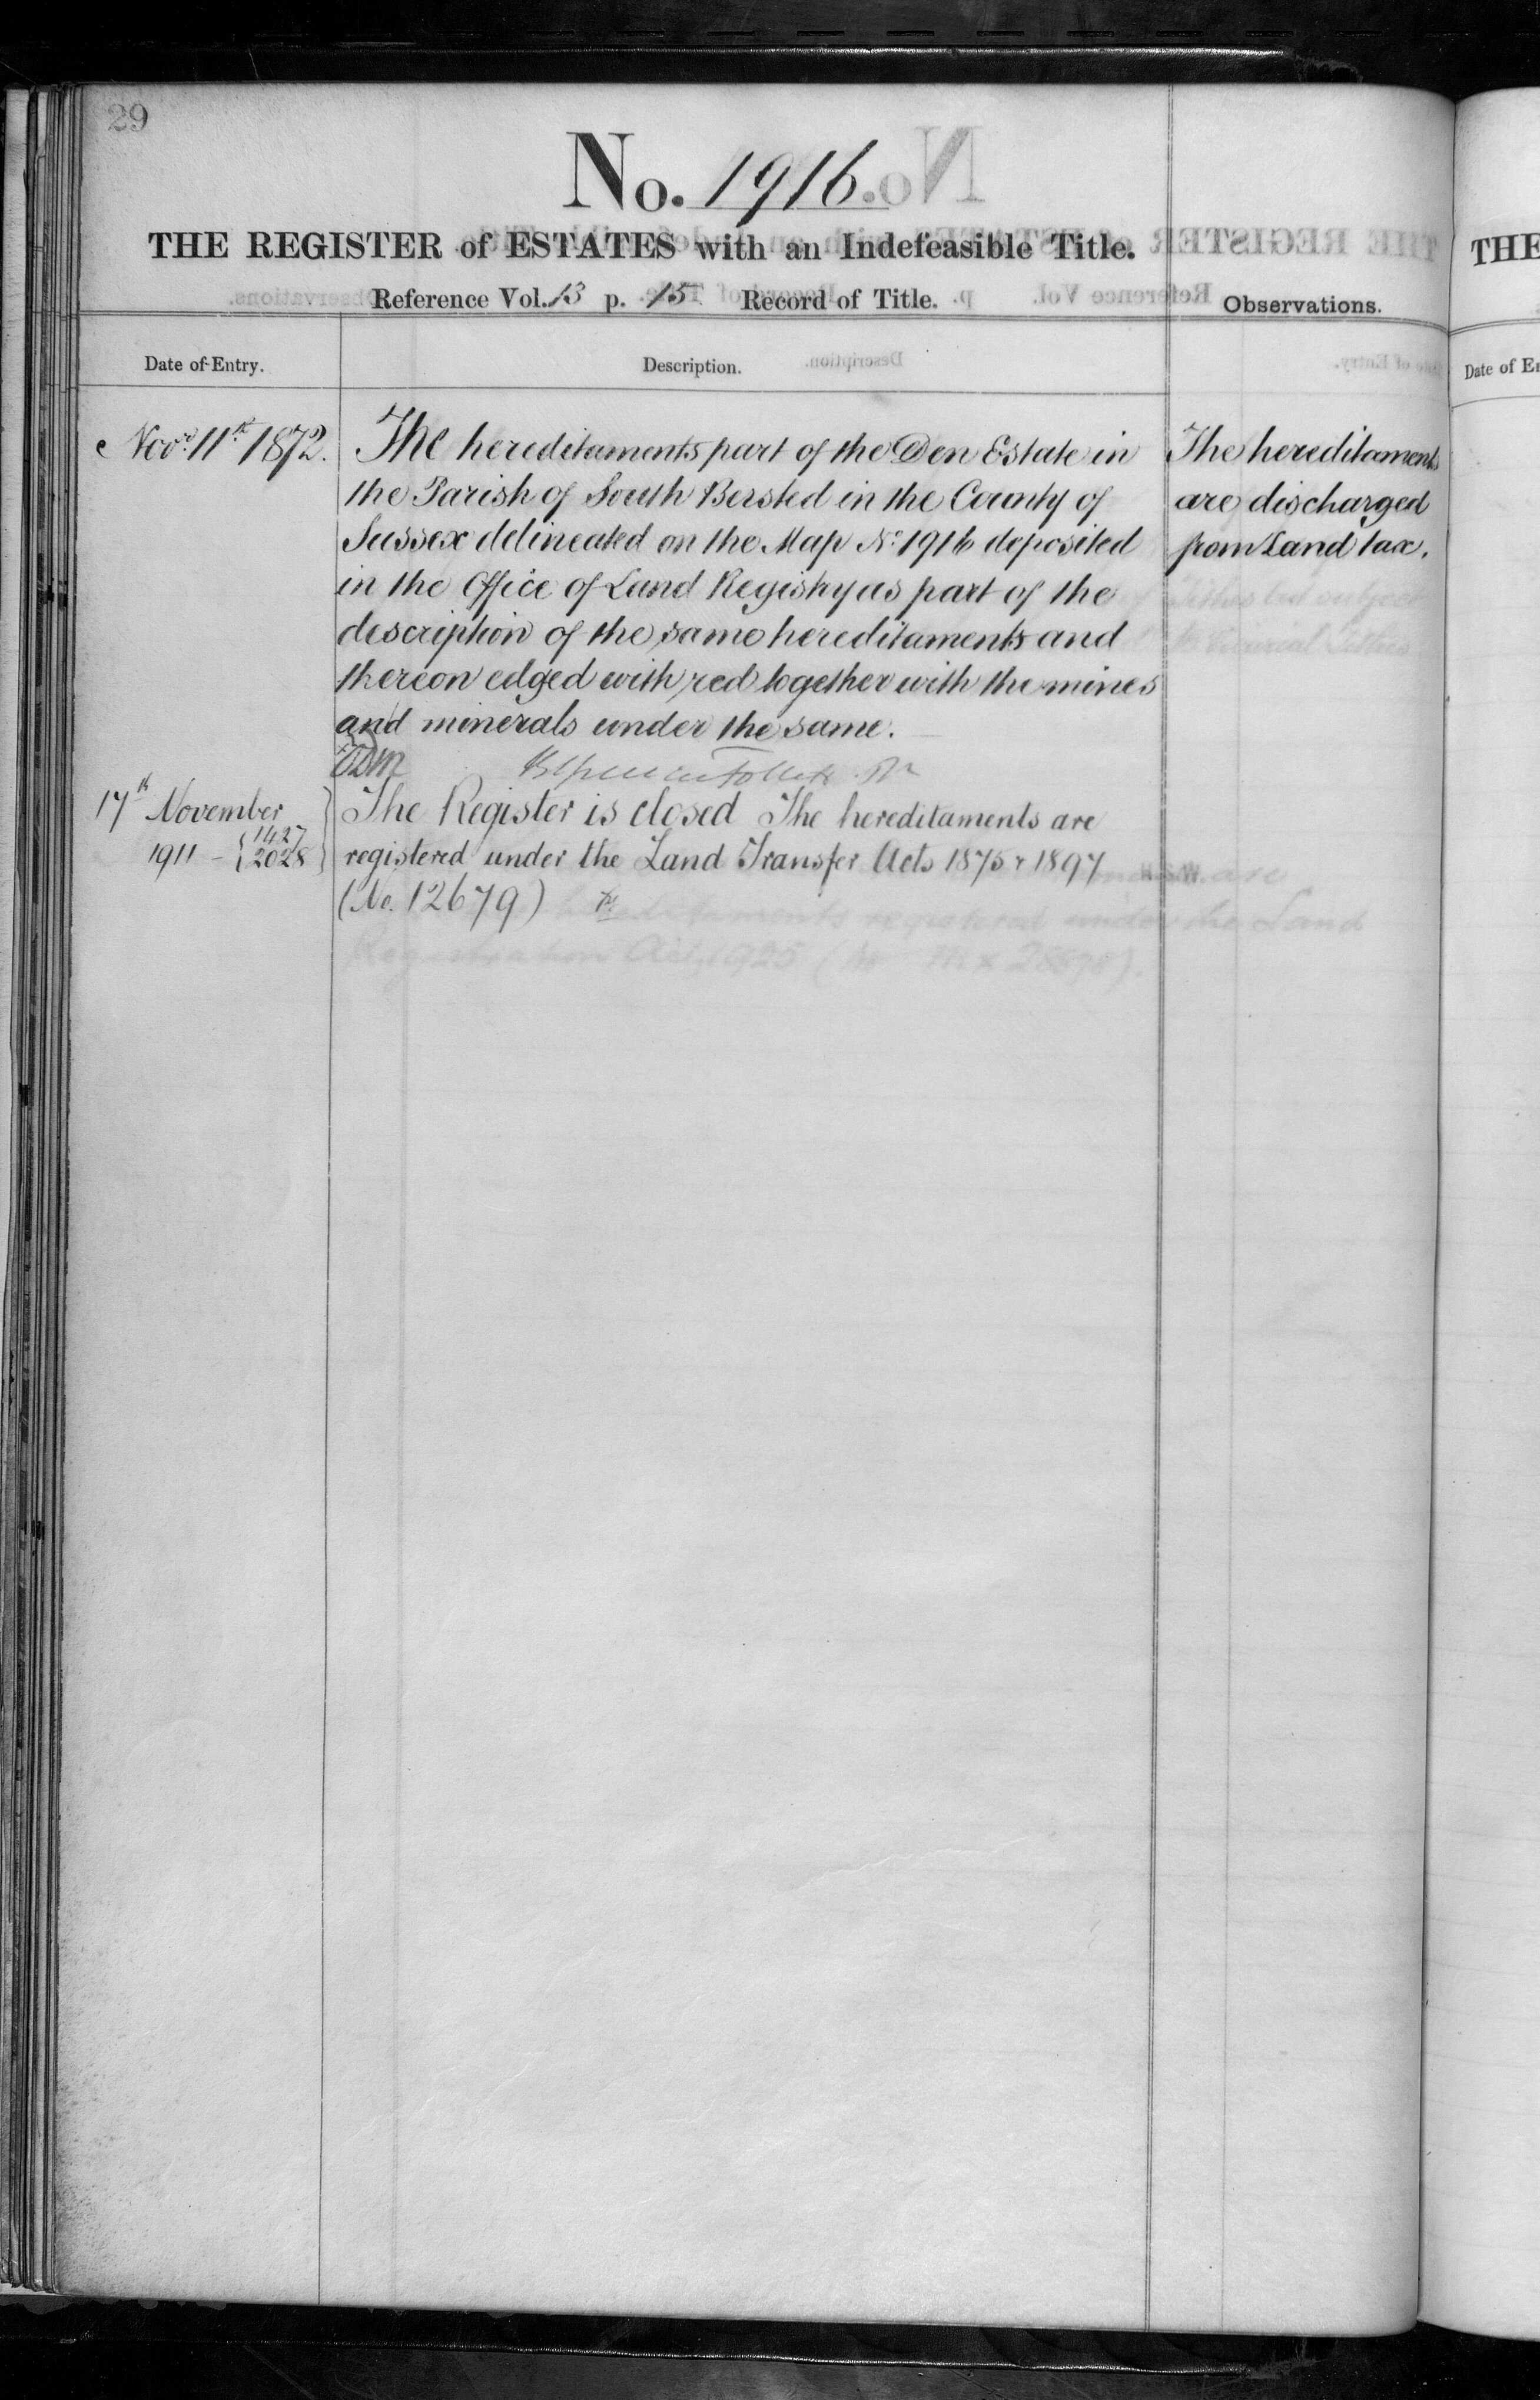 29
No. 1916.
THE REGISTER of ESTATES with an Indefeasible Title.
Reference Vol. 13 p. 15 Record of Title.
Observations.
Date of Entry.
Description.
Novr. 11th 1872.
The hereditaments part of the Den Estate in
the Parish of South Bersted in the County of
Sussex delineated on the Map No. 1916 deposited
in the Office of Land Registry as part of the
description of the same hereditaments and
thereon edged with red together with the mines
and minerals under the same.
The hereditaments
are discharged
from Land tax.
17th November
1911 - { 1427
2028 }
The Register is closed The hereditaments are
registered under the Land Transfer Acts 1875 & 1897
(No. 12679)
THE
Date of En